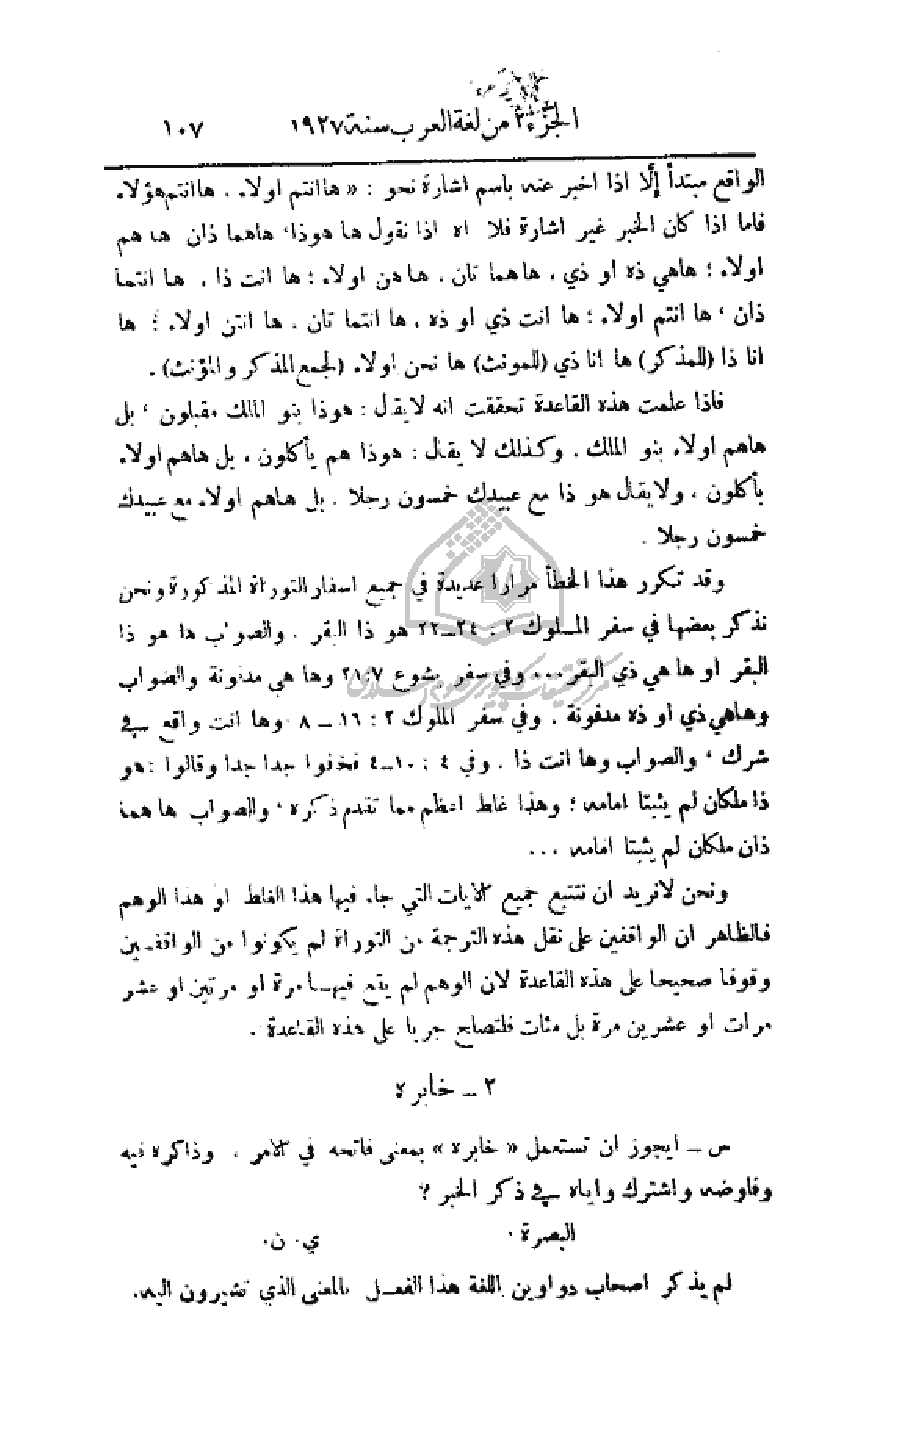 الجزء ٢ من لغة العرب سنة ١٩٢٧ ١٠٧
الواقع مبتدأ إلَّا اذا اخبر عنه باسم اشارة نحو : « ها انتم اولاء . ها انتم هؤلاء
فاما اذا كان الخبر غير اشارة فلا اه اذا نقول ها هوذا، هاهما ذان ها هم
اولاء ؛ هاهي ذه او ذي . هاهما تان . هاهن اولاء ؛ ها انت ذا . ها انتما
ذان ، ها انتم اولاء ؛ ها انت ذي او ذه . ها انتما تان . ها انتن اولاء ؛ ها
انا ذا (للمذكر) ها انا ذي (للمونث) ها نحن اولاء (لجمع المذكر والمؤنث) .
فاذا علمت هذه القاعدة تحققت انه لايقال : هوذا بنو الملك مقبلون ، بل
هاهم اولاء بنو الملك . وكذلك لا يقال : هوذا هم يأكلون . بل هاهم اولاء
يأكلون . ولايقال هو ذا مع عبيدك خمسون رجلا . بل هاهم اولاء مع عبيدك
خمسون رجلا .
وقد تكرر هذا الخطأ مرارا عديدة في جميع اسفار التوراة المذكورة ونحن
نذكر بعضها في سفر الملوك ٢ : ٢٤ــ٢٢ هو ذا البقر . والصواب ها هو ذا
البقر او ها هي ذي البقر... وفي سفر يشوع ٧:٢١ وها هي مدفونة والصواب
وهاهي ذي او ذه مدفونة . وفي سفر الملوك ٢ : ١٦ ــ ٨ وها انت واقع في
شرك ، والصواب وها انت ذا . وفي ٤ : ١٠ــ٤ فخفوا جدا جدا وقالوا : هو
ذا ملكان لم يثبتا امامه ؛ وهذا غلط اعظم مما تقدم ذكره ، والصواب ها هما
ذان ملكان لم يثبتا امامه ...
ونحن لانريد ان نتتبع جميع الآيات التي جاء فيها هذا الغلط او هذا الوهم
فالظاهر ان الواقفين على نقل هذه الترجمة من التوراة لم يكونوا من الواقفـين
وقوفا صحيحا على هذه القاعدة لان الوهم لم يقع فيهـا مرة او مرتين او عشر
مرات او عشرين مرة بل مئات فلتصلح جريا على هذه القاعدة .
٢ ــ خابره
س ــ ايجوز ان تستعمل « خابره » بمعنى فاتحه في الامر . وذاكره فيه
وفاوضه واشترك واياه في ذكر الخبر ؟
البصرة . ي. ن.
لم يذكر اصحاب دواوين اللغة هذا الفعـل بالمعنى الذي تشيرون اليه.